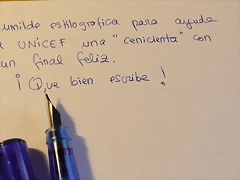 humilde estilográfica para ayuda
a UNICEF una "cenicienta" con
un final feliz.
¡Que bien escribe!